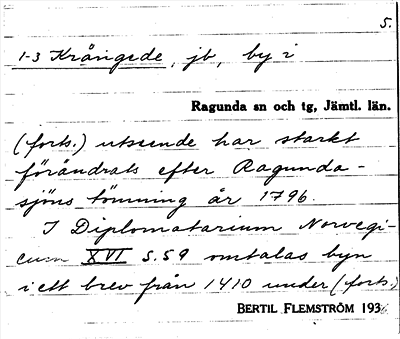 5.
1-3 Krångede, jb, by i
Ragunda sn och tg, Jämtl. län.
(forts.) utseende har starkt
förändrats efter Ragunda-
sjöns tömning år 1796.
I Diplomatarium Norvegi-
cum XVI s. 59 omtalas byn
i ett brev från 1410 under (forts.)
BERTIL FLEMSTRÖM 1936